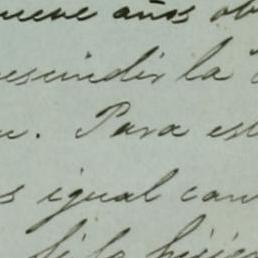 nueve años ob
rescindir la
Para est
s igual can
si lo hicie